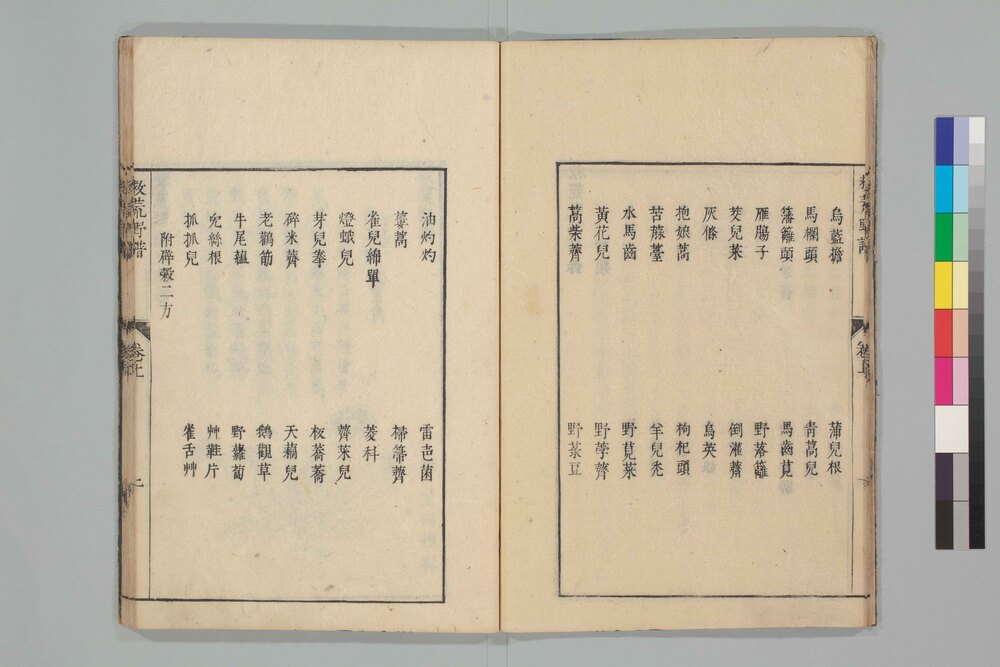 烏藍擔 蒲兒根
馬欄頭 青蒿兒
籓籬頭 馬齒莧
雁腸子 野落籬
茭兒菜 倒灌薺
灰條 烏英
抱娘蒿 枸杞頭
苦蔴臺 羊兒禿
水馬齒 野莧菜
黃花兒 野荸薺
蒿柴薺 野菉豆
油灼灼 雷芭菌
蔞蒿 掃箒薺
雀兒綿單 菱科
燈蛾兒 薺菜兒
芽兒拳 板蕎蕎
碎米薺 天藕兒
老鸛筋 鵝觀草
牛尾瘟 野蘿蔔
兔絲根 艸鞋片
抓抓兒 雀舌艸
附辟穀二方
救荒野譜 卷上 二